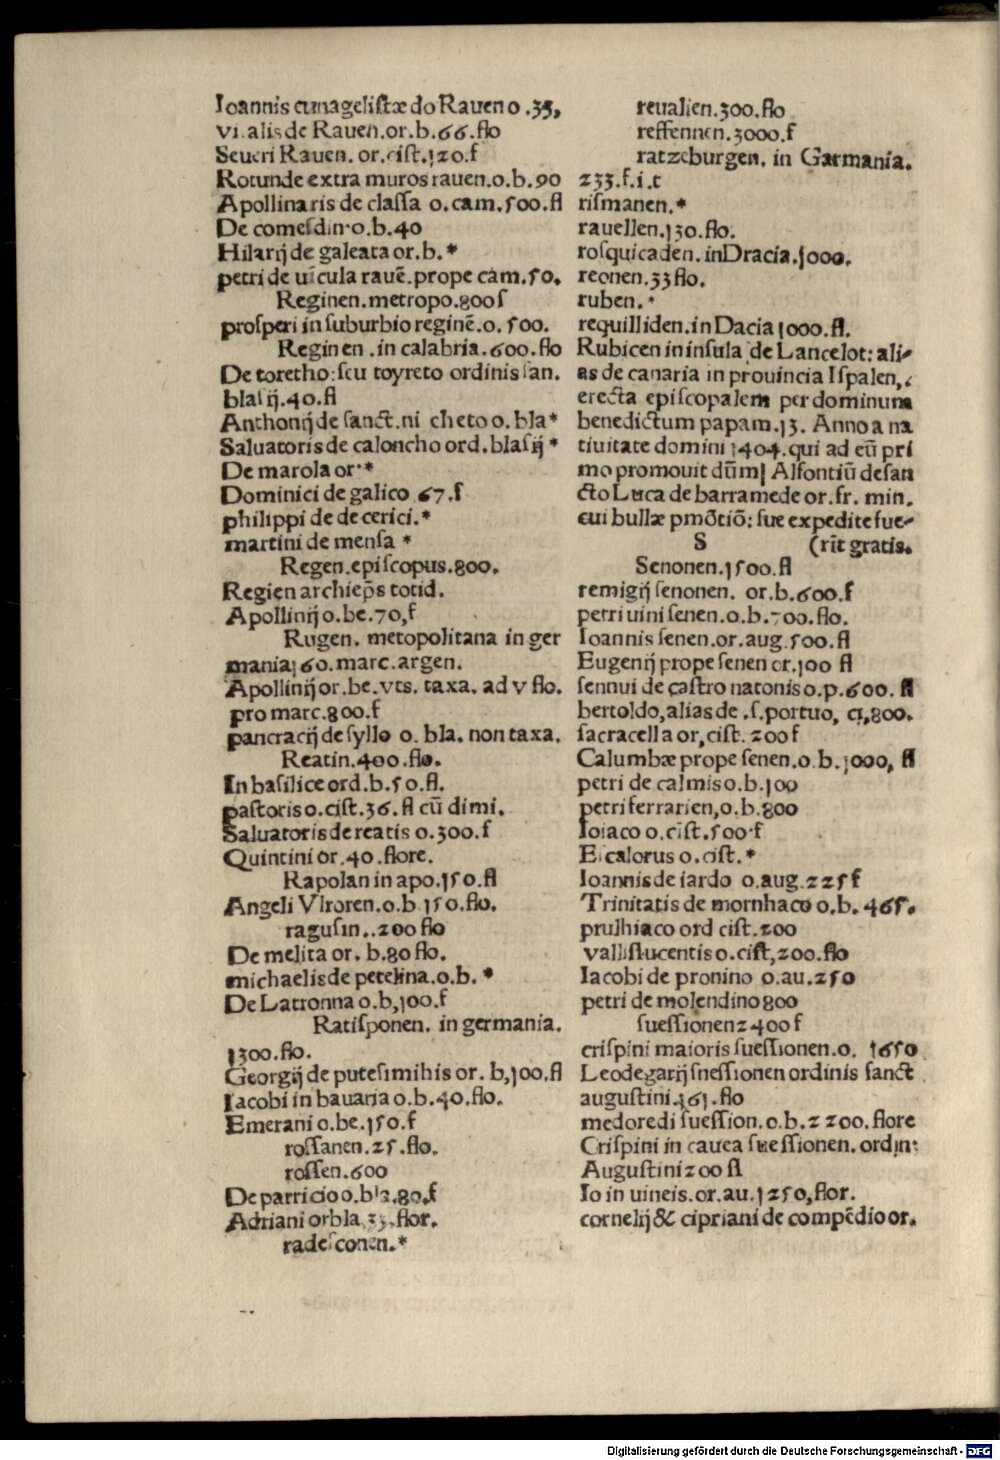 Ioannis euangelistæ do Rauen o .35,
vi.alis de Rauen.or.b.66.flo
Seueri Rauen. or.cist.120.f
Rotunde extra muros rauen.o.b.90
Apollinaris de classa o.cam.500.fl
De comesdin.o.b.40
Hilarij de galeata or.b.*
petri de uīcula rauē.prope cam.50.
Reginen.metropo.800f
prosperi in suburbio reginē.o. 500.
Reginen .in calabria.600.flo
De toretho:seu toyreto ordinis san.
blasij.40.fl
Anthonij de sanct.ni cheto o. bla*
Saluatoris de caloncho ord.blasij *
De marola or.*
Dominici de galico 67.f
philippi de de cerici.*
martini de mensa *
Regen.episcopus.800.
Regien archiep̄s totid.
Apollinij o.be.70,f
Rugen. metopolitana in ger
mania160.marc.argen.
Apollinij or.be.vts. taxa. ad v flo.
pro marc.800.f
pancracij de syllo o. bla. non taxa.
Reatin.400.flo.
In basilice ord.b.50.fl.
pastoris o.cist.36.fl cū dimi.
Saluatoris de reatis o.300.f
Quintini or.40.flore.
Rapolan in apo.150.fl
Angeli Vlroren.o.b 150.flo.
ragusin..200 flo
De melita or. b.80 flo.
michaelis de petelina.o.b. *
De Latronna o.b,100.f
Ratisponen. in germania.
1300.flo.
Georgij de putesimihis or. b,100.fl
Iacobi in bauaria o.b.40.flo.
Emerani o.be.150.f
rossanen.25.flo.
rossen.600
De parricio o.bla.80.f
Adriani or bla.33.flor.
radesconen.*
reualien.300.flo
reffennen.3000.f
ratzeburgen. in Garmania.
233.f.i.t
rismanen.*
rauellen.130.flo.
rosquicaden.inDracia.1000.
reonen.33flo.
ruben.*
requilliden.in Dacia 1000.fl.
Rubicen in insula de Lancelot: ali-
as de canaria in prouincia Ispalen,.
erecta episcopalem per dominum
benedictum papam.13. Anno a na
tiuitate domini 1404.qui ad eū pri
mo promouit dūm| Alfontiū de san
cto Luca de barramede or.fr. min.
cui bullæ pmōtiō: sue expedite fue-
S (rīt gratis.
Senonen.1500.fl
remigij senonen. or.b.600.f
petri uini senen.o.b.700.flo.
Ioannis senen.or.aug.500.fl
Eugenij prope senen or.100 fl
sennui de castro natonis o.p.600. fl
bertoldo,alias de .s.portuo, c1,800.
sacracella or,cist.200f
Calumbæ prope senen.o.b.1000, fl
petri de calmis o.b.100
petri ferrarien,o.b.800
Ioiaco o.cist.500.f
Eicalorus o.cist.*
Ioannis de iardo o.aug.225f
Trinitatis de mornhaco o.b. 465.
prulhiaco ord cist.200
vallislucentis o.cist,200.flo
Iacobi de pronino o.au.250
petri de molendino800
suessionen2400f
crispini maioris suessionen.o. 1650
Leodegarij snessionen ordinis sanct
augustini.161.flo
medoredi suession.o.b.2200.flore
Crispini in cauea suessionen. ordin:
Augustini200fl
Io in uineis.or.au.1250,flor.
cornelij & cipriani de compēdio or.
Digitalisierung gefördert durch die Deutsche Forschungsgemeinschaft - DFG